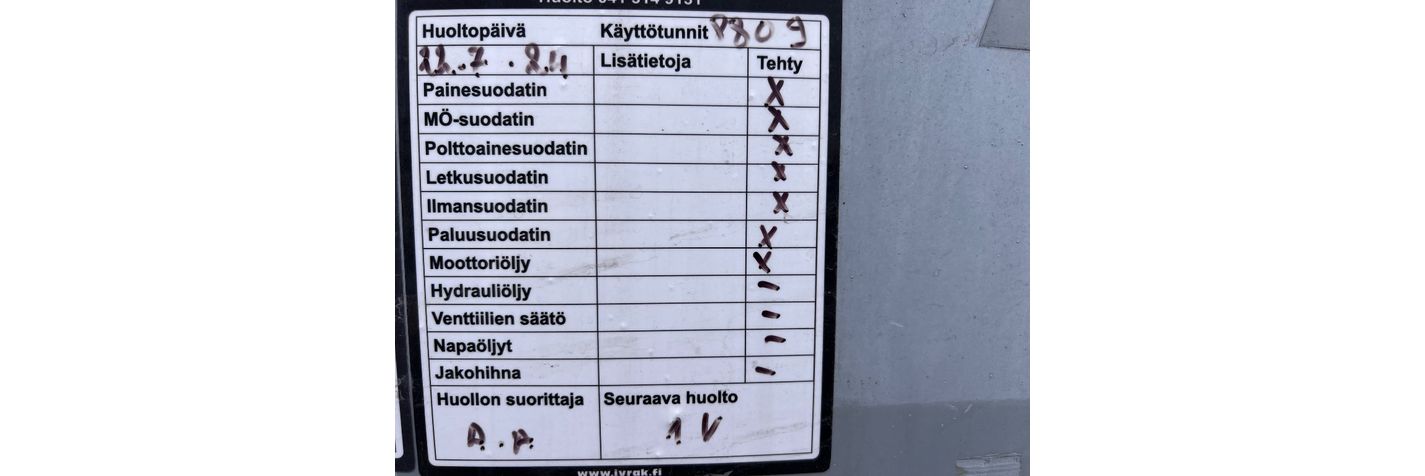 Huoltopäivä Käyttötunnit 9809
22.7.24 Lisätietoja Tehty
Painesuodatin X
MÖ-suodatin X
Polttoainesuodatin X
Letkusuodatin X
Ilmansuodatin X
Paluusuodatin X
Moottoriöljy X
Hydrauliöljy -
Venttiilien säätö -
Napaöljyt -
Jakohihna -
Huollon suorittaja Seuraava huolto
A.A 1 V
www.jyrak.fi